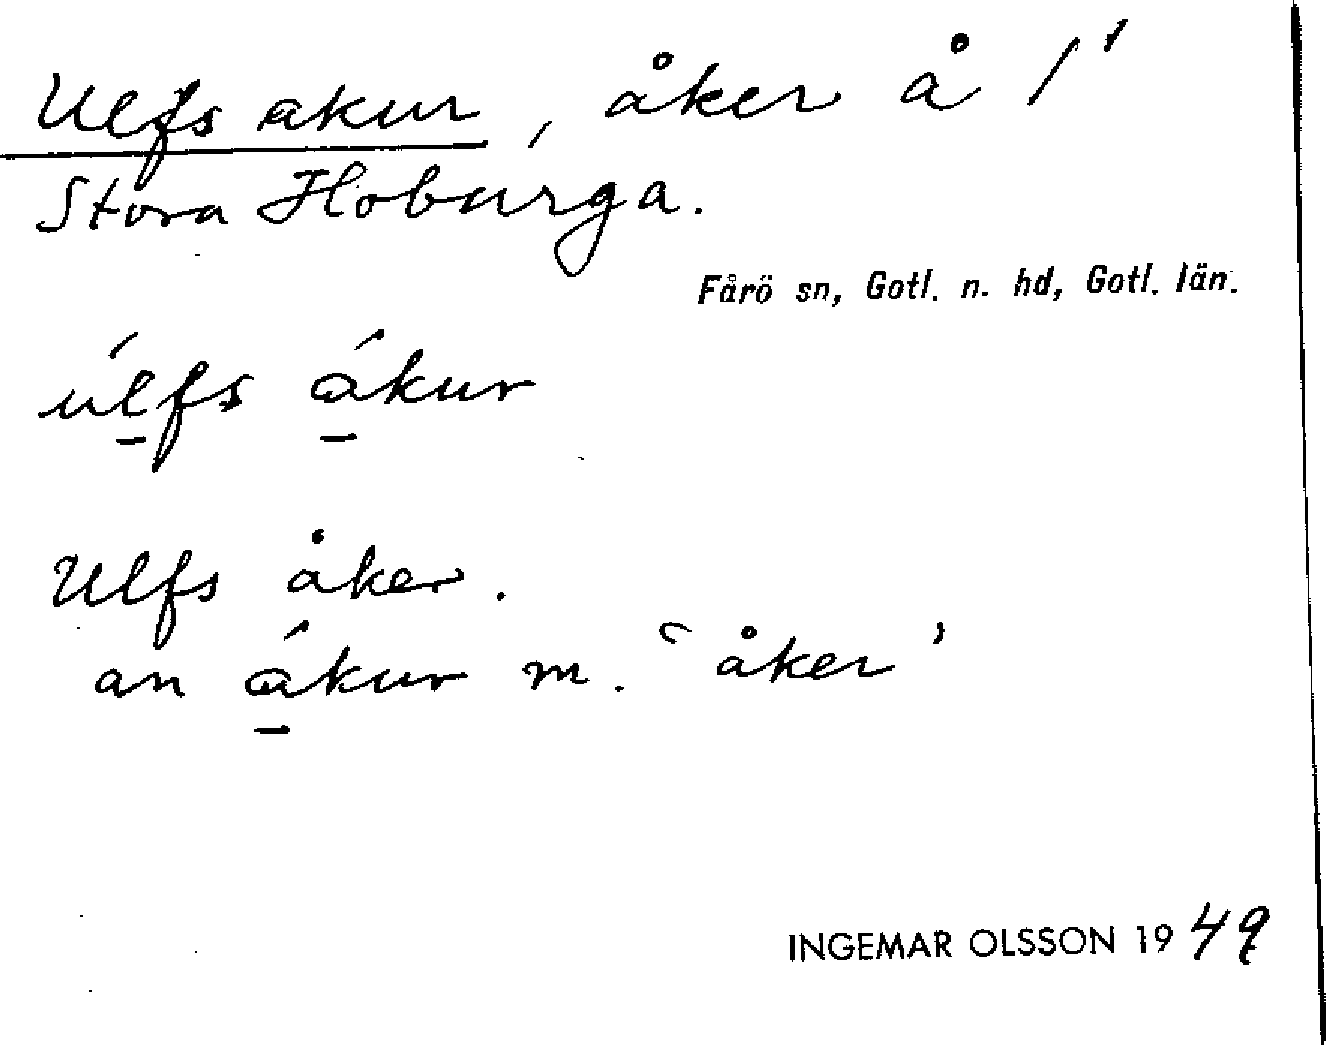 Ulfs akur, åker å 1/1
Stora Hoburga.
Fårö sn, Gotl. n. hd, Gotl. län.
úl̲fs á̲kur
Ulfs åker.
an á̲kur m. ‘åker’
INGEMAR OLSSON 1949